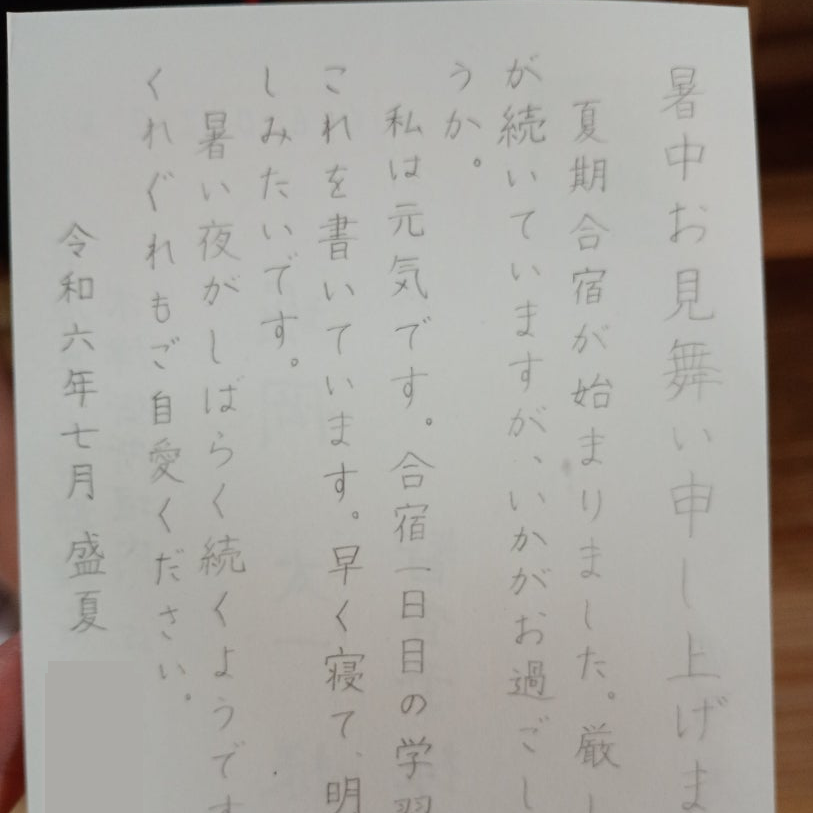 暑中お見舞い申し上げま
夏期合宿が始まりました。厳し
が続いていますが、いかがお過ごし
うか。
私は元気です。合宿一日目の学習
これを書いています。早く寝て、明
しみたいです。
暑い夜がしばらく続くようです
くれぐれもご自愛ください。
令和六年七月 盛夏